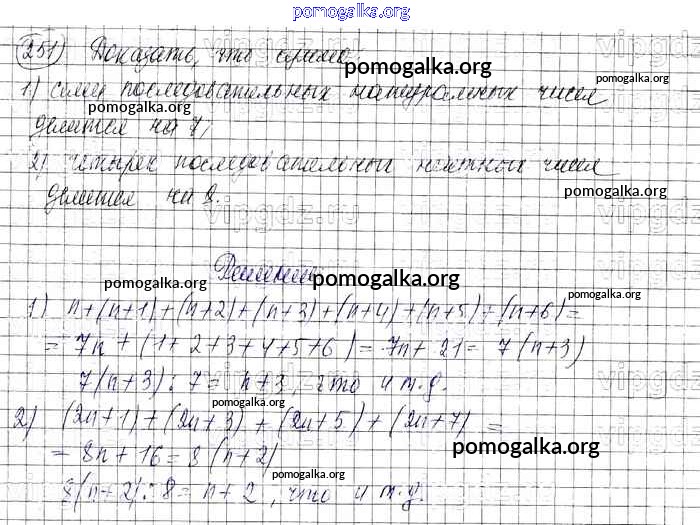 pomogalka.org
251) Доказать, что сумма:
pomogalka.org
1) семи последовательных натуральных чисел
pomogalka.org
делится на 7;
2) четырех последовательных нечетных чисел
pomogalka.org
делится на 8.
vipgdz.ru
Решение
pomogalka.org pomogalka.org pomogalka.org
1) n + (n+1) + (n+2) + (n+3) + (n+4) + (n+5) + (n+6) =
= 7n + (1+2+3+4+5+6) = 7n + 21 = 7(n+3)
7(n+3) : 7 = n+3, что и т.д.
pomogalka.org
2) (2n+1) + (2n+3) + (2n+5) + (2n+7) =
= 8n + 16 = 8(n+2)
pomogalka.org
pomogalka.org
8(n+2) : 8 = n+2, что и т.д.